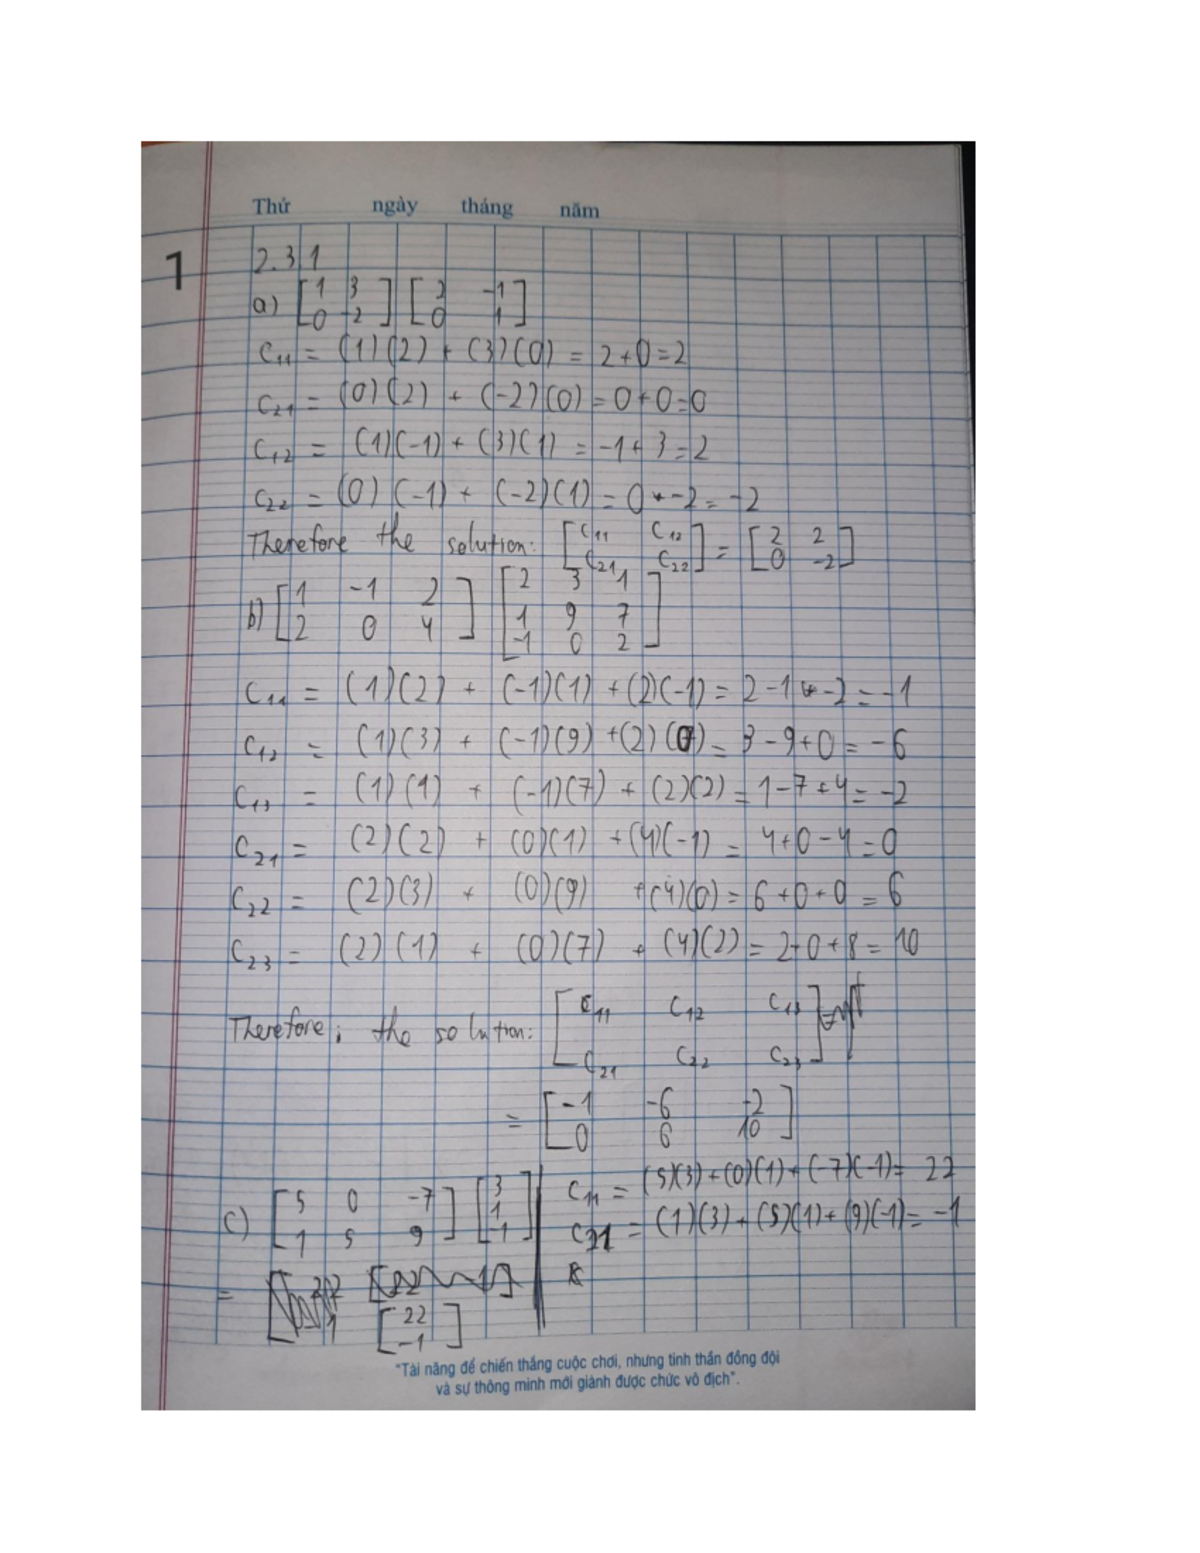 Thứ ngày tháng năm
1
2.31
a) [1 3; 0 -2] [2 -1; 0 1]
C11 = (1)(2) + (3)(0) = 2+0=2
C21 = (0)(2) + (-2)(0) = 0+0=0
C12 = (1)(-1) + (3)(1) = -1+3=2
C22 = (0)(-1) + (-2)(1) = 0+-2=-2
Therefore the solution: [C11 C12; C21 C22] = [2 2; 0 -2]
b) [1 -1 2; 2 0 4] [2 3 1; 1 9 7; -1 0 2]
C11 = (1)(2) + (-1)(1) + (2)(-1) = 2-1+-2=-1
C12 = (1)(3) + (-1)(9) + (2)(0) = 3-9+0=-6
C13 = (1)(1) + (-1)(7) + (2)(2) = 1-7+4=-2
C21 = (2)(2) + (0)(1) + (4)(-1) = 4+0-4=0
C22 = (2)(3) + (0)(9) + (4)(0) = 6+0+0=6
C23 = (2)(1) + (0)(7) + (4)(2) = 2+0+8=10
Therefore, the solution: [C11 C12 C13; C21 C22 C23]
= [-1 -6 -2; 0 6 10]
c) [5 0 -7; 1 5 9] [3; 1; -1]
C11 = (5)(3)+(0)(1)+(-7)(-1)= 22
C21 = (1)(3)+(5)(1)+(9)(-1)=-1
= [22; -1]
"Tài năng để chiến thắng cuộc chơi, nhưng tinh thần đồng đội
và sự thông minh mới giành được chức vô địch".